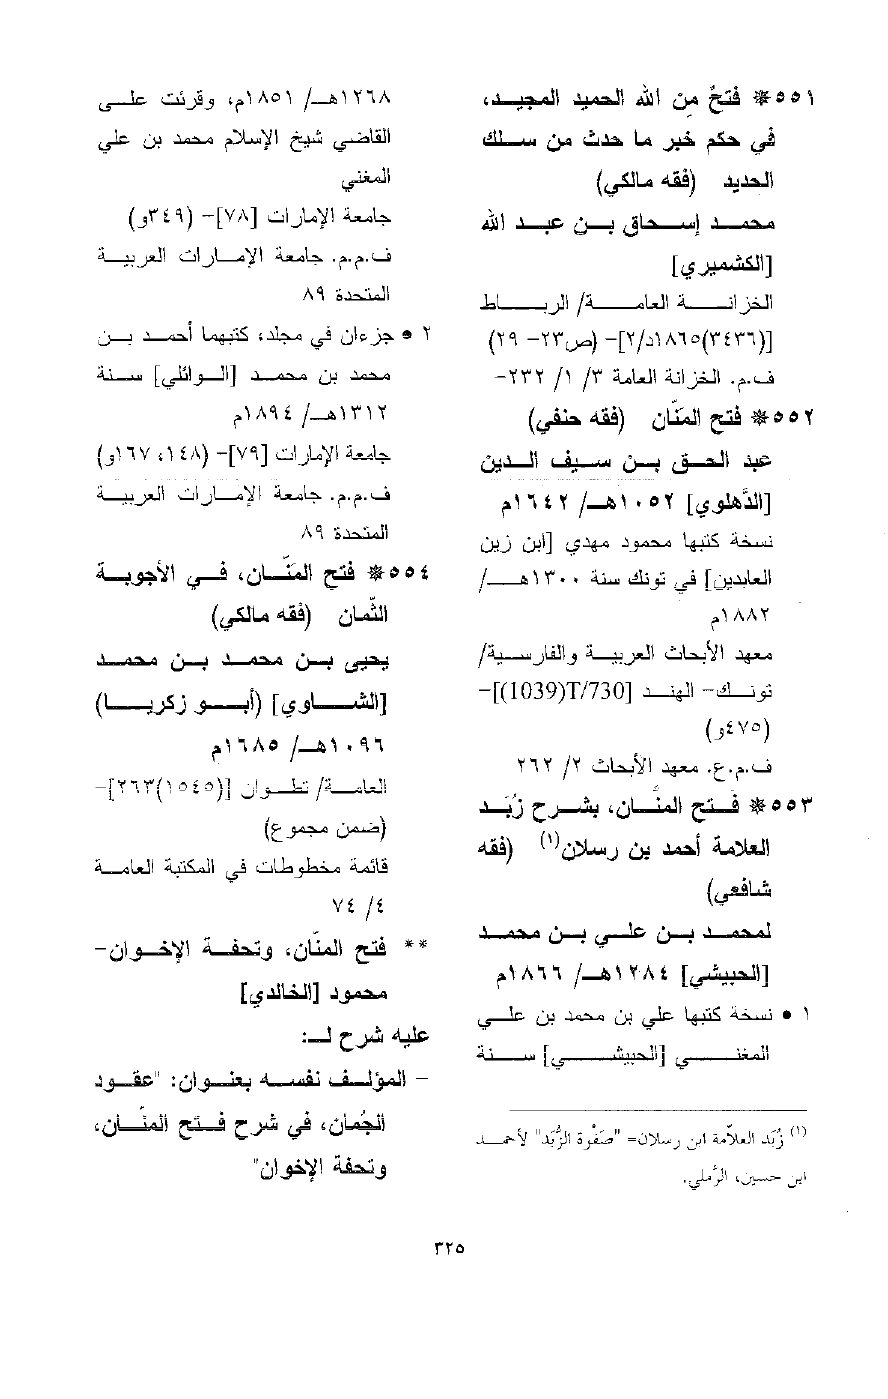 ٥٥١* فتحٌ مِن الله الحميد المجيد،
في حكم خبر ما حدث من سلك
الحديد (فقه مالكي)
محمد إسحاق بن عبد الله
[الكشميري]
الخزانة العامة/ الرباط
[(٣٤٣٦)١٨٦٥د/٢]- (ص٢٣- ٢٩)
ف.م. الخزانة العامة ٣/ ١/ ٢٣٢-
٥٥٢* فتح المنّان (فقه حنفي)
عبد الحق بن سيف الدين
[الدَّهلوي] ١٠٥٢هـ/ ١٦٤٢م
نسخة كتبها محمود مهدي [ابن زين
العابدين] في تونك سنة ١٣٠٠هـ/
١٨٨٢م
معهد الأبحاث العربية والفارسية/
تونك- الهند [1039)T/730)]-
(٤٧٥و)
ف.م.ع. معهد الأبحاث ٢/ ٢٦٢
٥٥٣* فتح المنَّان، بشرح زُبَد
العلامة أحمد بن رسلان(١) (فقه
شافعي)
لمحمد بن علي بن محمد
[الحبيشي] ١٢٨٤هـ/ ١٨٦٦م
١ • نسخة كتبها علي بن محمد بن علي
المغني [الحبيشي] سنة
(١) زُبَد العلاّمة ابن رسلان= "صَفْوة الزُّبَد" لأحمد
ابن حسين، الرَّملي.
١٢٦٨هـ/ ١٨٥١م، وقرئت على
القاضي شيخ الإسلام محمد بن علي
المغني
جامعة الإمارات [٧٨]- (٣٤٩و)
ف.م.م. جامعة الإمارات العربية
المتحدة ٨٩
٢ • جزءان في مجلد، كتبهما أحمد بن
محمد بن محمد [الوائلي] سنة
١٣١٢هـ/ ١٨٩٤م
جامعة الإمارات [٧٩]- (١٤٨، ١٦٧و)
ف.م.م. جامعة الإمارات العربية
المتحدة ٨٩
٥٥٤* فتح المنَّان، في الأجوبة
الثّمان (فقه مالكي)
يحيى بن محمد بن محمد
[الشاوي] (أبو زكريا)
١٠٩٦هـ/ ١٦٨٥م
العامة/ تطوان [(١٥٤٥)٢٦٣]-
(ضمن مجموع)
قائمة مخطوطات في المكتبة العامة
٤/ ٧٤
** فتح المنّان، وتحفة الإخوان-
محمود [الخالدي]
عليه شرح لـ:
- المؤلف نفسه بعنوان: "عقود
الجُمان، في شرح فتح المنَّان،
وتحفة الإخوان"
٣٢٥